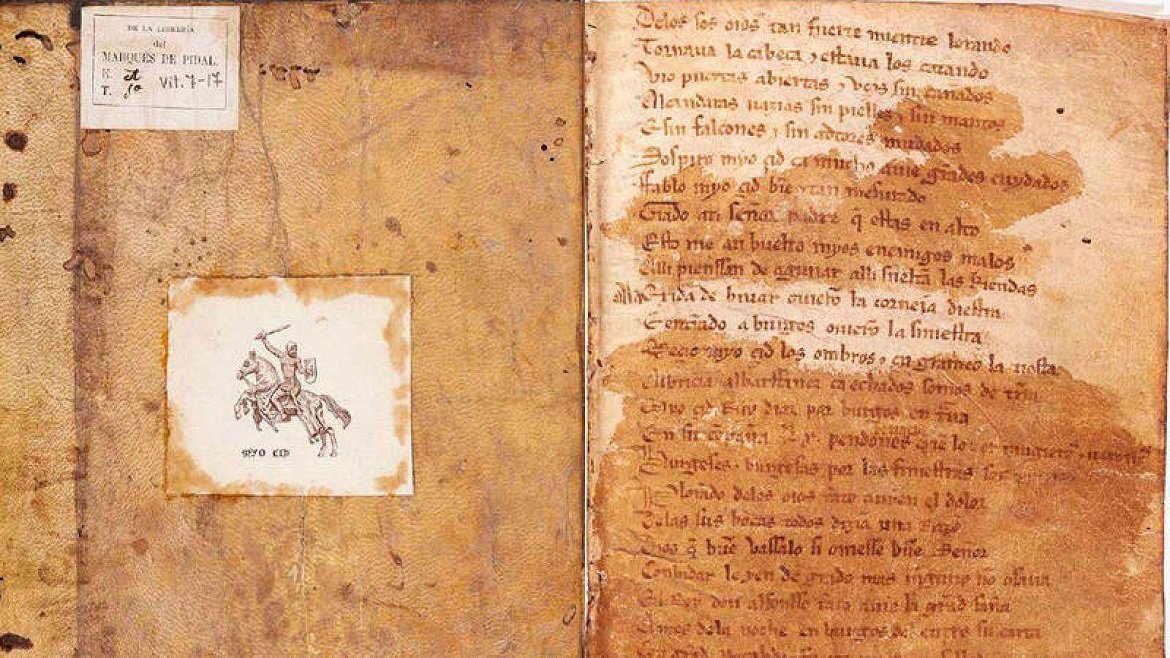 DE LA LIBRERÍA
del
MARQUES DE PIDAL
E.
T.
Vit. 7-17
MYO CID
Delos sos oios tan fuerte mientre lorando
Tornaua la cabeça y estaua los catando
Vio puertas abiertas y vços sin cañados
Alcandaras uazias sin pielles y sin mantos
E sin falcones y sin adtores mudados
Sospiro myo çid ca mucho auie grãdes cuydados
Fablo myo çid biẽ y tan mesurado
Grado ati señor padre q̃ estas en alto
Esto me an buelto myos enemigos malos
Alli pienssan de aguijar alli sueltã las Riendas
Ala Exida de biuar ouierõ la corneia diestra
Entrãdo a burgos ouierõ la siniestra
Meçio myo çid los ombros y en grameo la tiesta
Albricia albarffanez ca echados somos de trr̃a
Myo çid Ruy diaz por burgos en traua
En su cõpaña pendones
Burgeses burgesas por las finiestras
Plorãdo delos oios tãto auien el dolor
Delas sus bocas todos dizian una
Dios q̃ buẽ vassalo si ouiesse buẽ Señor
Conbidar le yen de grado mas ninguno nõ osaua
El Rey don alfonsso tãto auie la grãd saña
Antes dela noche en burgos del entro su carta